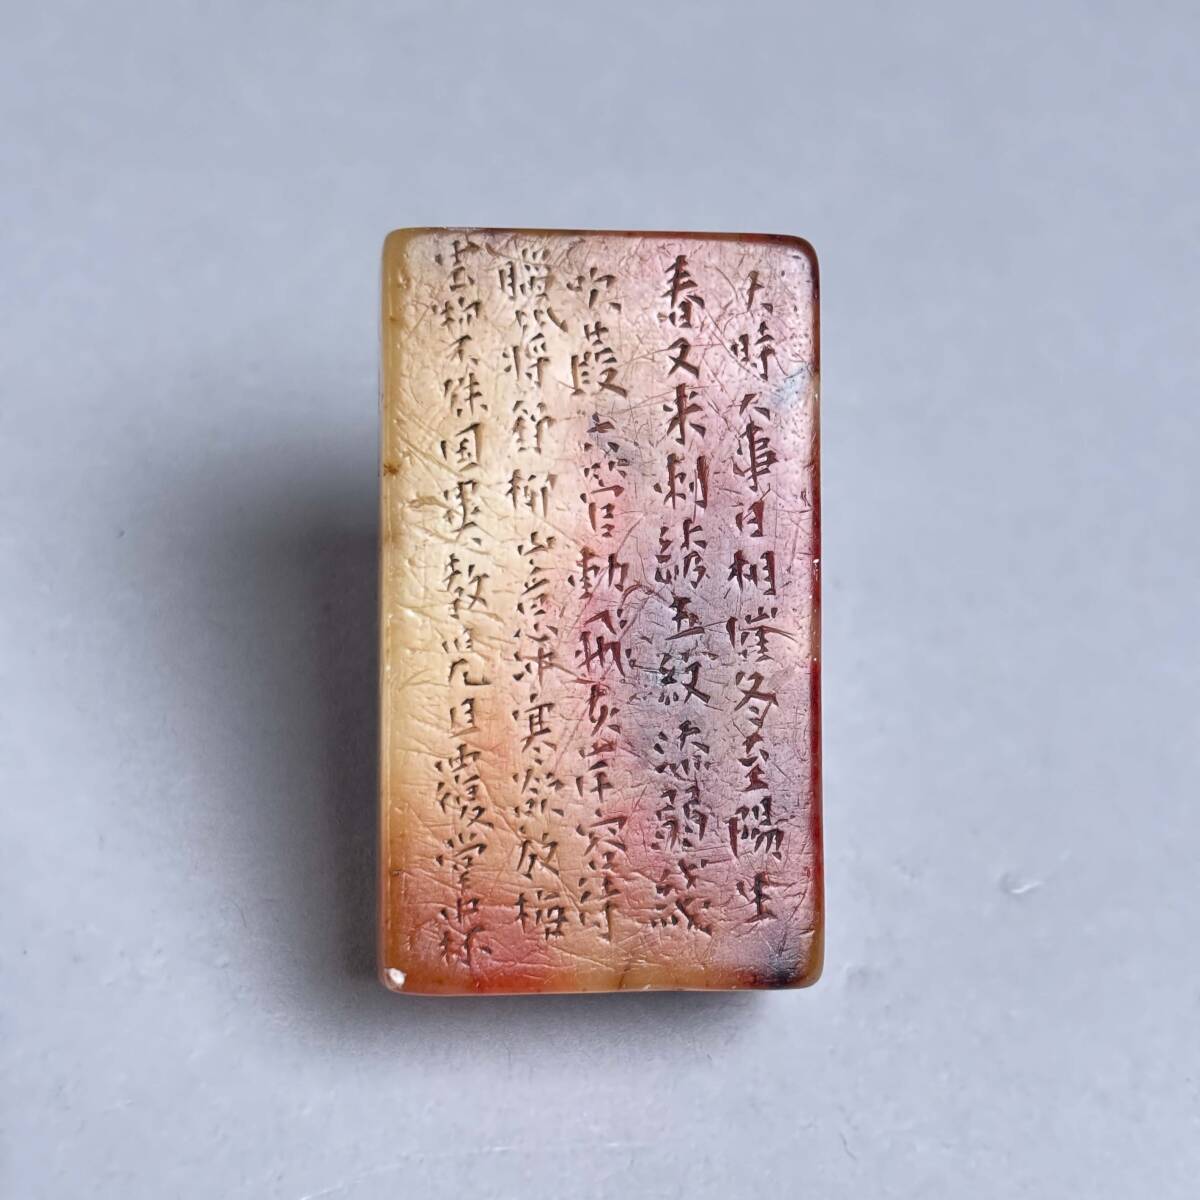 天時人事日相催冬至陽生
春又来刺繡五紋添弱綫
吹葭六管動飛灰岸容待
臘将舒柳山意冲寒欲放梅
雲物不殊国異教児且覆掌中杯